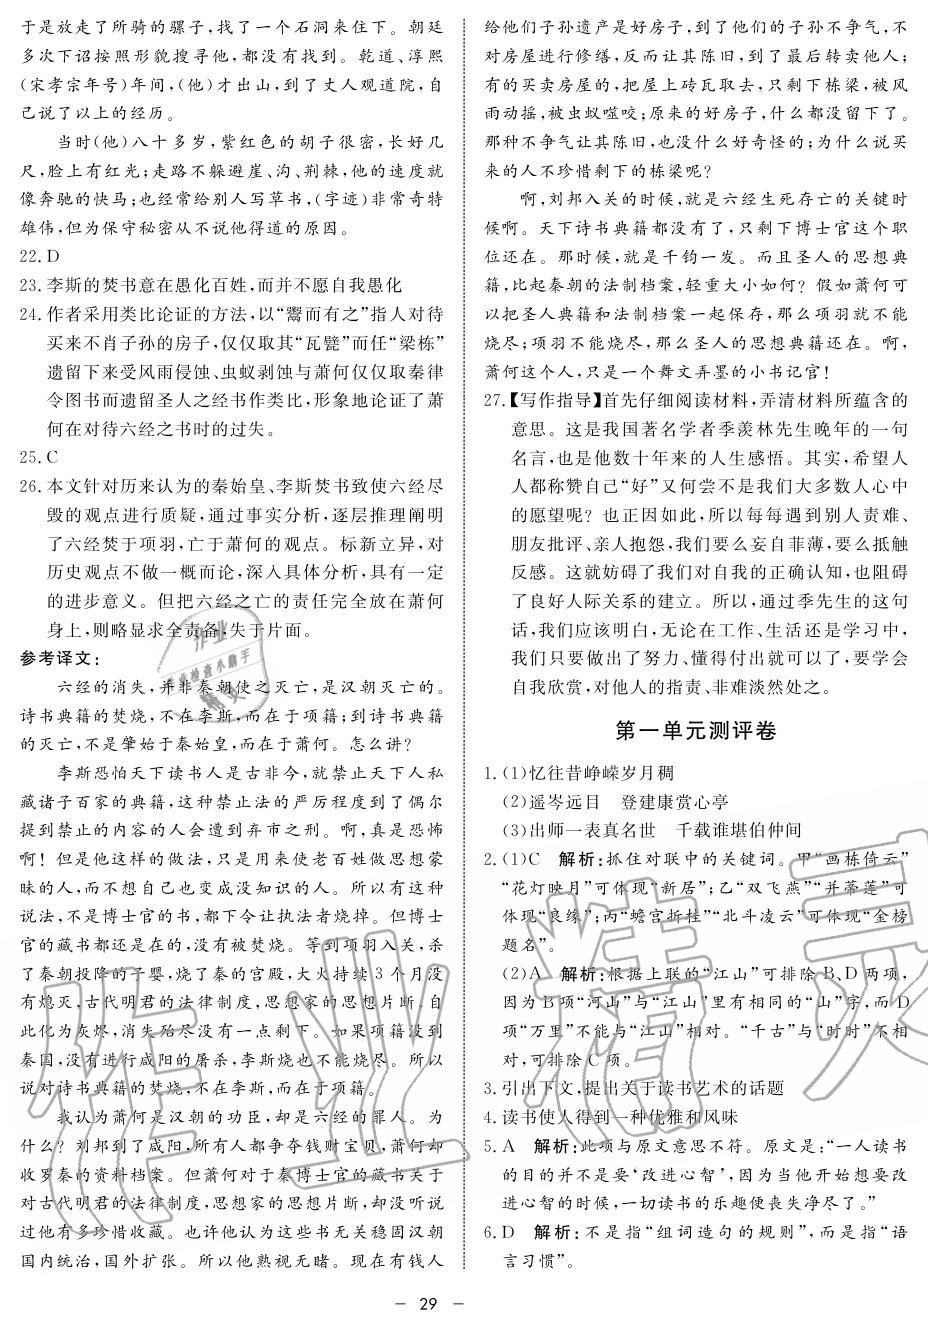 于是放走了所骑的骡子,找了一个石洞来住下。朝廷
多次下诏按照形貌搜寻他,都没有找到。乾道、淳熙
(宋孝宗年号)年间,(他)才出山,到了丈人观道院,自
己说了以上的经历。
当时(他)八十多岁,紫红色的胡子很密,长好几
尺,脸上有红光;走路不躲避崖、沟、荆棘,他的速度就
像奔驰的快马;也经常给别人写草书,(字迹)非常奇特
雄伟,但为保守秘密从不说他得道的原因。
22. D
23. 李斯的焚书意在愚化百姓,而并不愿自我愚化
24. 作者采用类比论证的方法,以“鬻而有之”指人对待
买来不肖子孙的房子,仅仅取其“瓦甓”而任“梁栋”
遗留下来受风雨侵蚀、虫蚁剥蚀与萧何仅仅取秦律
令图书而遗留圣人之经书作类比,形象地论证了萧
何在对待六经之书时的过失。
25. C
26. 本文针对历来认为的秦始皇、李斯焚书致使六经尽
毁的观点进行质疑,通过事实分析,逐层推理阐明
了六经焚于项羽,亡于萧何的观点。标新立异,对
历史观点不做一概而论,深入具体分析,具有一定
的进步意义。但把六经之亡的责任完全放在萧何
身上,则略显求全责备,失于片面。
参考译文:
六经的消失,并非秦朝使之灭亡,是汉朝灭亡的。
诗书典籍的焚烧,不在李斯,而在于项籍;到诗书典籍
的灭亡,不是肇始于秦始皇,而在于萧何。怎么讲?
李斯恐怕天下读书人是古非今,就禁止天下人私
藏诸子百家的典籍,这种禁止法的严厉程度到了偶尔
提到禁止的内容的人会遭到弃市之刑。啊,真是恐怖
啊!但是他这样的做法,只是用来使老百姓做思想蒙
昧的人,而不想自己也变成没知识的人。所以有这种
说法,不是博士官的书,都下令让执法者烧掉。但博士
官的藏书都还是在的,没有被焚烧。等到项羽入关,杀
了秦朝投降的子婴,烧了秦的宫殿,大火持续3个月没
有熄灭,古代明君的法律制度,思想家的思想片断,自
此化为灰烬,消失殆尽没有一点剩下。如果项籍没到
秦国,没有进行咸阳的屠杀,李斯烧也不能烧尽。所以
说对诗书典籍的焚烧,不在李斯,而在于项籍。
我认为萧何是汉朝的功臣,却是六经的罪人。为
什么?刘邦到了咸阳,所有人都争夺钱财宝贝,萧何却
收罗秦的资料档案。但萧何对于秦博士官的藏书关于
对古代明君的法律制度,思想家的思想片断,却没听说
过他有多珍惜收藏。也许他认为这些书无关稳固汉朝
国内统治,国外扩张。所以他熟视无睹。现在有钱人
给他们子孙遗产是好房子,到了他们的子孙不争气,不
对房屋进行修缮,反而让其陈旧,到了最后转卖他人;
有的买卖房屋的,把屋上砖瓦取去,只剩下栋梁,被风
雨动摇,被虫蚁噬咬;原来的好房子,什么都没留下了。
那种不争气让其陈旧,也没什么好奇怪的;为什么说买
来的人不珍惜剩下的栋梁呢?
啊,刘邦入关的时候,就是六经生死存亡的关键时
候啊。天下诗书典籍都没有了,只剩下博士官这个职
位还在。那时候,就是千钧一发。而且圣人的思想典
籍,比起秦朝的法制档案,轻重大小如何?假如萧何可
以把圣人典籍和法制档案一起保存,那么项羽就不能
烧尽;项羽不能烧尽,那么圣人的思想典籍还在。啊,
萧何这个人,只是一个舞文弄墨的小书记官!
27. 【写作指导】首先仔细阅读材料,弄清材料所蕴含的
意思。这是我国著名学者季羡林先生晚年的一句
名言,也是他数十年来的人生感悟。其实,希望人
人都称赞自己“好”又何尝不是我们大多数人心中
的愿望呢?也正因如此,所以每每遇到别人责难、
朋友批评、亲人抱怨,我们要么妄自菲薄,要么抵触
反感。这就妨碍了我们对自我的正确认知,也阻碍
了良好人际关系的建立。所以,通过季先生的这句
话,我们应该明白,无论在工作、生活还是学习中,
我们只要做出了努力、懂得付出就可以了,要学会
自我欣赏,对他人的指责、非难淡然处之。
第一单元测评卷
1. (1)忆往昔峥嵘岁月稠
(2)遥岑远目 登建康赏心亭
(3)出师一表真名世 千载谁堪伯仲间
2. (1)C 解析:抓住对联中的关键词。甲“画栋倚云”
“花灯映月”可体现“新居”;乙“双飞燕”“并蒂莲”可
体现“良缘”;丙“蟾宫折桂”“北斗凌云”可体现“金榜
题名”。
(2)A 解析:根据上联的“江山”可排除B、D两项,
因为B项“河山”与“江山”里有相同的“山”字,而D
项“万里”不能与“江山”相对。“千古”与“时时”不相
对,可排除C项。
3. 引出下文,提出关于读书艺术的话题
4. 读书使人得到一种优雅和风味
5. A 解析:此项与原文意思不符。原文是:“一人读书
的目的并不是要‘改进心智’,因为当他开始想要改
进心智的时候,一切读书的乐趣便丧失净尽了。”
6. D 解析:不是指“组词造句的规则”,而是指“语
言习惯”。
– 29 –
作业精灵
作业
作业检查小助手
精灵